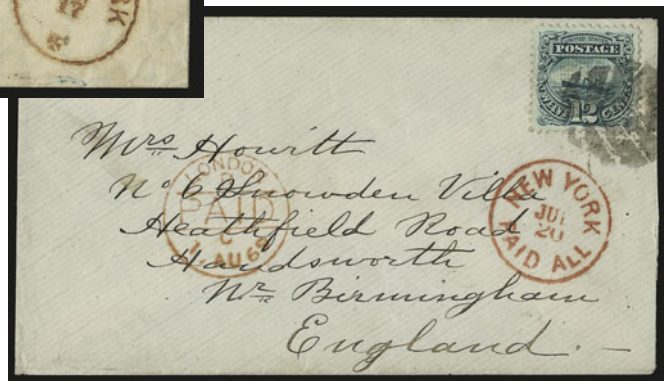 RK
UNITED STATES
POSTAGE
TWELVE 12 CENTS
Mrs Howitt
No 6 Snowden Villa
Heathfield Road
Handsworth
Nr Birmingham
England.—
LONDON
PAID
C
1. AU 69
NEW YORK
JUL
20
PAID ALL